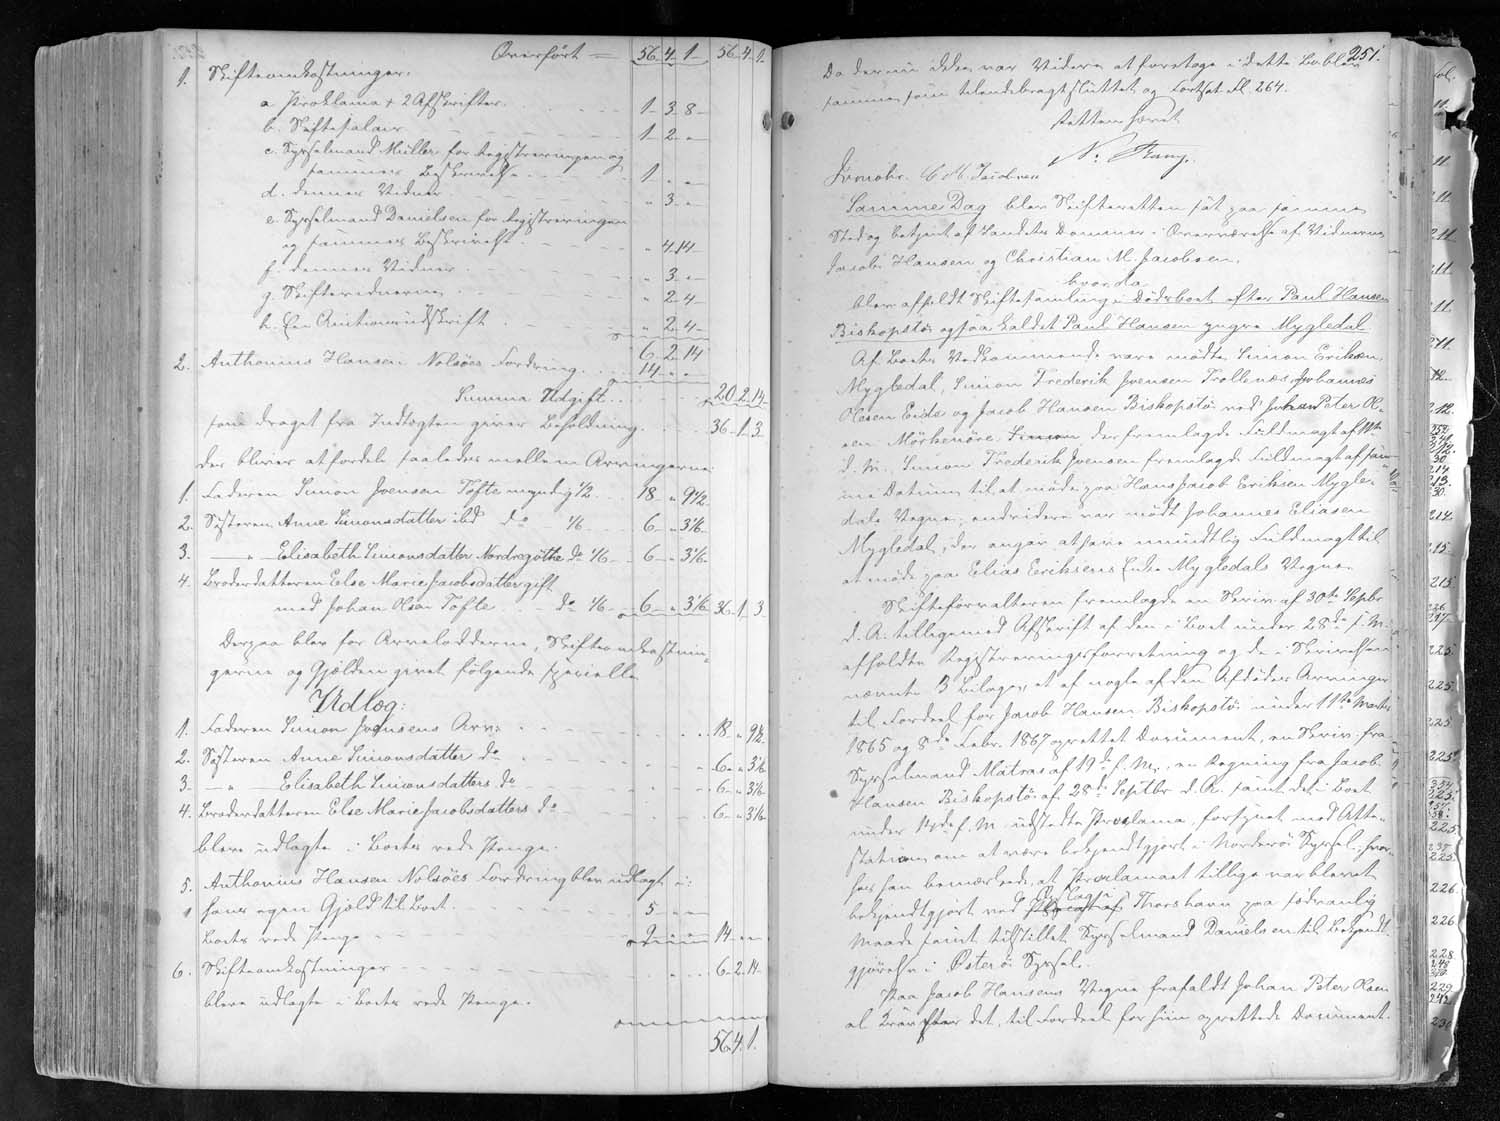 Overført = 56 4 1 56 4 1.
1. Skifteomkostninger:
a. Proklama & 2 Afskrifter 1 3 8
b. Skiftesalair 1 2 "
c. Sysselmand Müller for Registreringen og
sammes Beskrivelse 1 " "
d. dennes Vidner " 3 "
e. Sysselmand Danielsen for Registreringen
og sammes Beskrivelse " 4 14
f. dennes Vidner " 3 "
g. Skiftevidnerne " 2 4
h. En Auctionsudskrift " 2 4
6 2 14
2. Anthonius Hansen Nolsøes Fordring 14 " "
Summa Udgift 20 2 14
som draget fra Indtægten giver Beholdning 36 1 3
der bliver at fordele saaledes mellem Arvingerne:
1. Faderen Simon Joensen Tofte myndig 1/2 18 " 9 1/2
2. Søsteren Anne Simonsdatter ibd do 1/6 6 " 3 1/6
3. — " — Elisabeth Simonsdatter Nordregøthe do 1/6 6 " 3 1/6
4. Broderdatteren Else Marie Jacobsdatter gift
med Johan Olsen Tofte do 1/6 6 " 3 1/6 36 1 3
Derpaa blev for Arvelodderne, Skifteomkostnin-
gerne og Gjælden givet følgende specielle
Udlæg:
1. Faderen Simon Joensens Arv: 18 " 9 1/2
2. Søsteren Anne Simonsdatter do 6 " 3 1/6
3. — " — Elisabeth Simonsdatters do 6 " 3 1/6
4. Broderdatteren Else Marie Jacobsdatters do 6 " 3 1/6
bleve udlagte i Boets rede Penge.
5. Anthonius Hansen Nolsøes Fordring blev udlagt i:
hans egen Gjæld til Boet 5 " "
Boets rede Penge 9 " " 14 " "
6. Skifteomkostninger 6 2 14
bleve udlagte i Boets rede Penge.
56 4 1.
251.
Da der nu ikke var Videre at foretage i dette Bo blev
samme som tilendebragt sluttet og Fortsat Fol. 264.
Retten hævet
Jacob Hansen. C. M. Jacobsen
Samme Dag blev Skifteretten sat paa samme
Sted og betjent af Landets Dommer i Overværelse af Vidnerne
Jacob Hansen og Christian M. Jacobsen,
hvorda
blev afholdt Skiftesamling i Dødsboet efter Paul Hansen
Biskopstø: ogsaa kaldet Paul Hansen yngre Mygledal
Af Boets Vedkommende vare mødte Simon Eriksen
Mygledal, Simon Frederik Joensen Trollenæs, Johannes
Olesen Eide og Jacob Hansen Biskopstø ved Johan Peter Ol-
sen Mörkenöre, Simon der fremlagde Fuldmagt af
d. M., Simon Frederik Joensen fremlagde Fuldmagt af sam-
me Datum til at møde paa Hans Jacob Eriksen Mygle-
dals Vegne; endvidere var mødt Johannes Eliasen
Mygledal, der angav at have mundtlig Fuldmagt til
at møde paa Elias Eriksens Enke Mygledals Vegne.
Skifteforvalteren fremlagde en Skriv. af 30te Septbr
d. A. tilligemed Afskrift af den i Boet under 28de f. M.
afholdte Registreringsforretning og de i Skrivelsen
nævnte 3 Bilage, et af nogle af den Afdødes Arvinger
til Fordeel for Jacob Hansen Biskopstø: under 11te Marts
1865 og 8de Febr. 1867 oprettet Document, en Skriv. fra
Sysselmand Matras af 19de f. M., en Regning fra Jacob
Hansen Biskopstø: af 28de Septbr d. A. samt det i Boet
under f. M. udstedte Proclama, forsynet med Atte-
station om at være bekjendtgjort i Norderø Syssel; hvor-
hos han bemærkede, at Proclamaet tillige var blevet
bekjendtgjort ved Opslag i Thorshavn paa sædvanlig
Maade samt tilstillet Sysselmand Danielsen til Bekjendt-
gjørelse i Østerø Syssel.
Paa Jacob Hansens Vegne frafaldt Johan Peter Olsen
al Krav efter det, til Fordeel for ham oprettede Document.